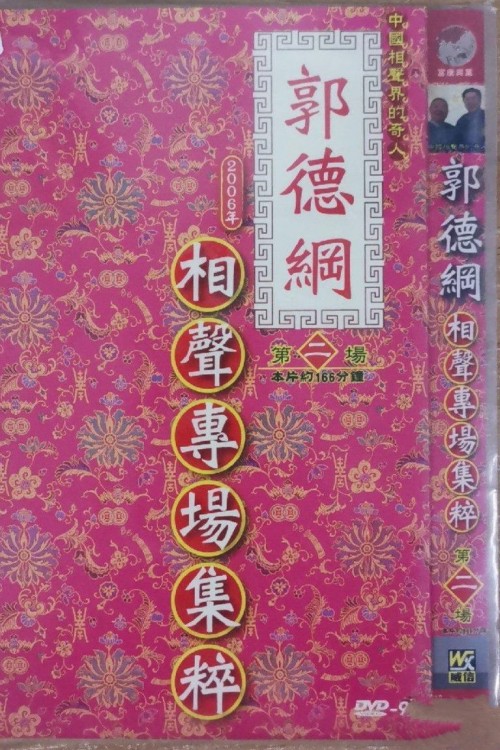 中國相聲界的奇人
郭德綱
2006年
相聲專場集粹
第二場
本片約166分鐘
DVD-9
郭德綱
相聲專場集粹
第二場
WX
威信